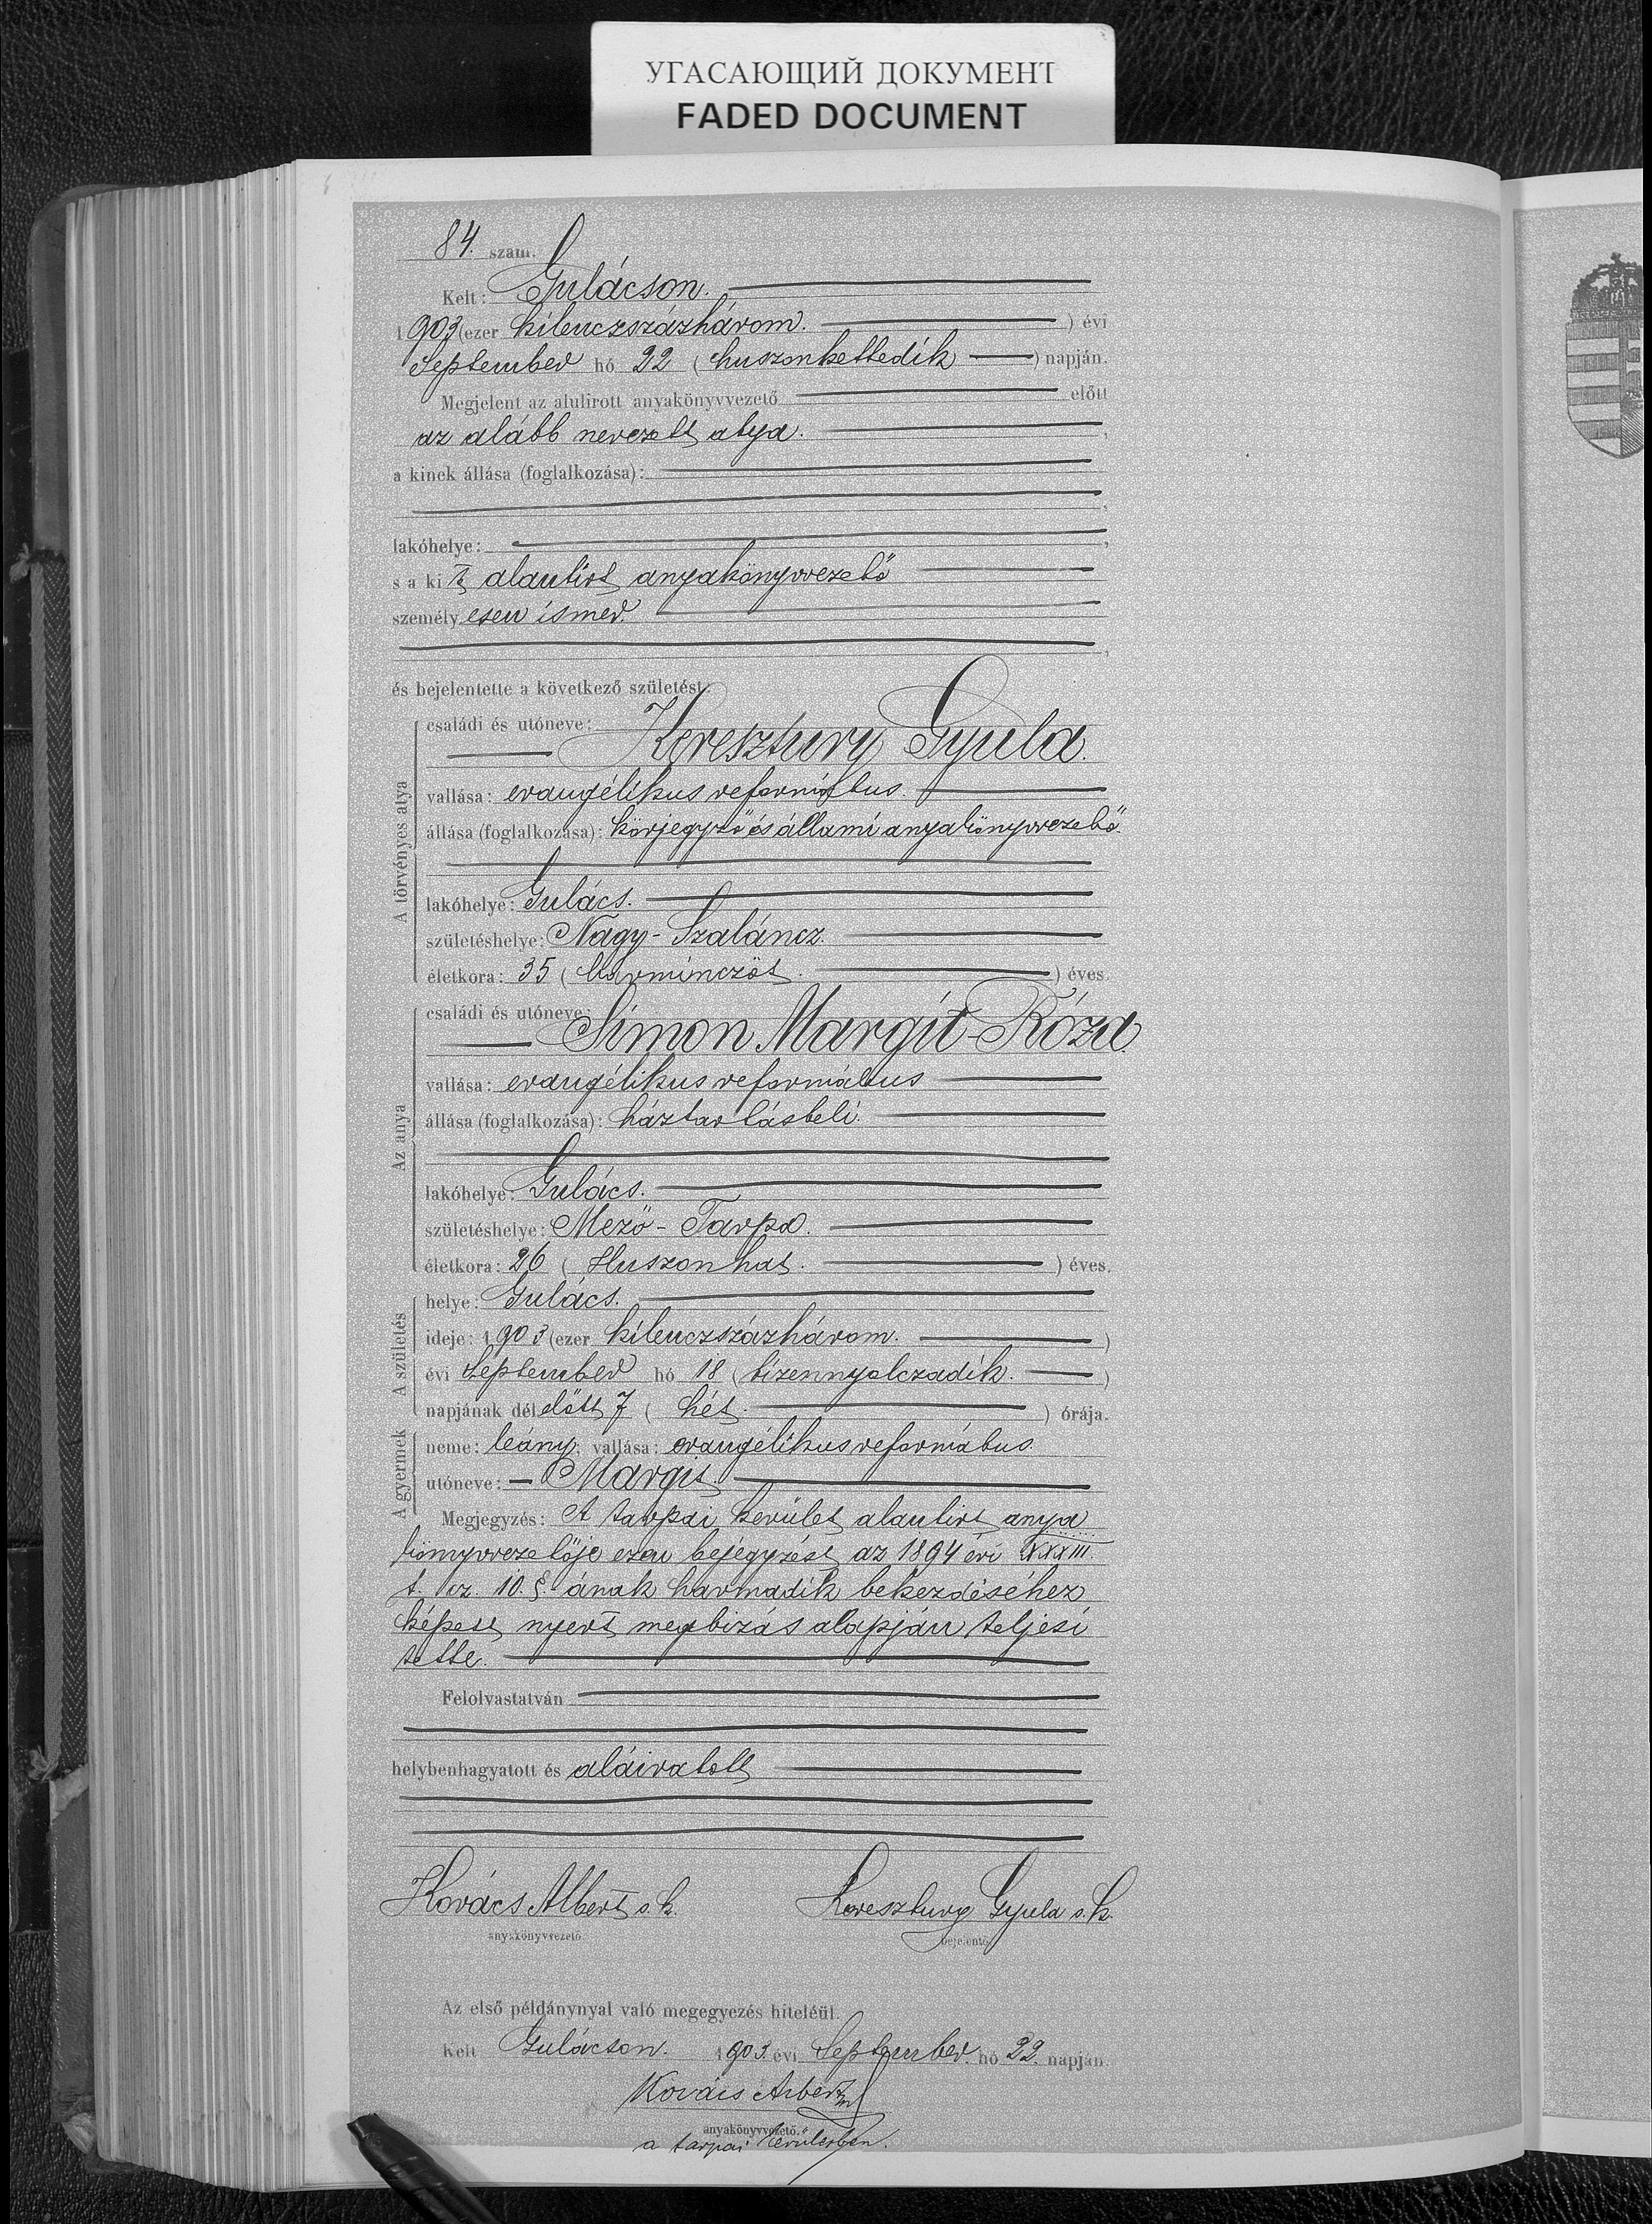 УГАСАЮЩИЙ ДОКУМЕНТ
FADED DOCUMENT
84. szám.
Kelt: Gulácson.
1903 (ezer kilenczszázhárom. ) évi
September hó 22 (huszonkettedik ) napján.
Megjelent az alulirott anyakönyvvezető előtt
az alább nevezett atya.
a kinek állása (foglalkozása):
lakóhelye:
s a kit alantirt anyakönyvvezető
személyesen ismer.
és bejelentette a következő születést:
A törvényes atya
családi és utóneve:
Keresztury Gyula.
vallása: evangélikus református.
állása (foglalkozása): körjegyző és állami anyakönyvvezető.
lakóhelye: Gulács.
születéshelye: Nagy-Szaláncz.
életkora: 35 (harminczöt. ) éves.
Az anya
családi és utóneve:
Simon Margit-Róza.
vallása: evangélikus református
állása (foglalkozása): háztartásbeli.
lakóhelye: Gulács.
születéshelye: Mező-Tarpa.
életkora: 26 (Huszonhat. ) éves.
A születés
helye: Gulács.
ideje: 1903 (ezer kilenczszázhárom. )
évi September hó 18 (tizennyolczadik. )
napjának délelőtt 7 (hét. ) órája.
A gyermek
neme: leány; vallása: evangélikus református.
utóneve: Margit.
Megjegyzés: A tarpai kerület alantirt anya
könyvvezetője ezen bejegyzést az 1894 évi XXXIII.
t. cz. 10. §-ának harmadik bekezdéséhez
képest nyert megbizás alapján teljesi
tette.
Felolvastatván
helybenhagyatott és aláiratott
Kovács Albert s.k. Keresztury Gyula s.k.
anyakönyvvezető. bejelentő.
Az első példánynyal való megegyezés hiteléül.
Kelt Gulácson. 1903. évi September. hó 22. napján.
Kovács Albert
anyakönyvvezető.
a tarpai kerületben.